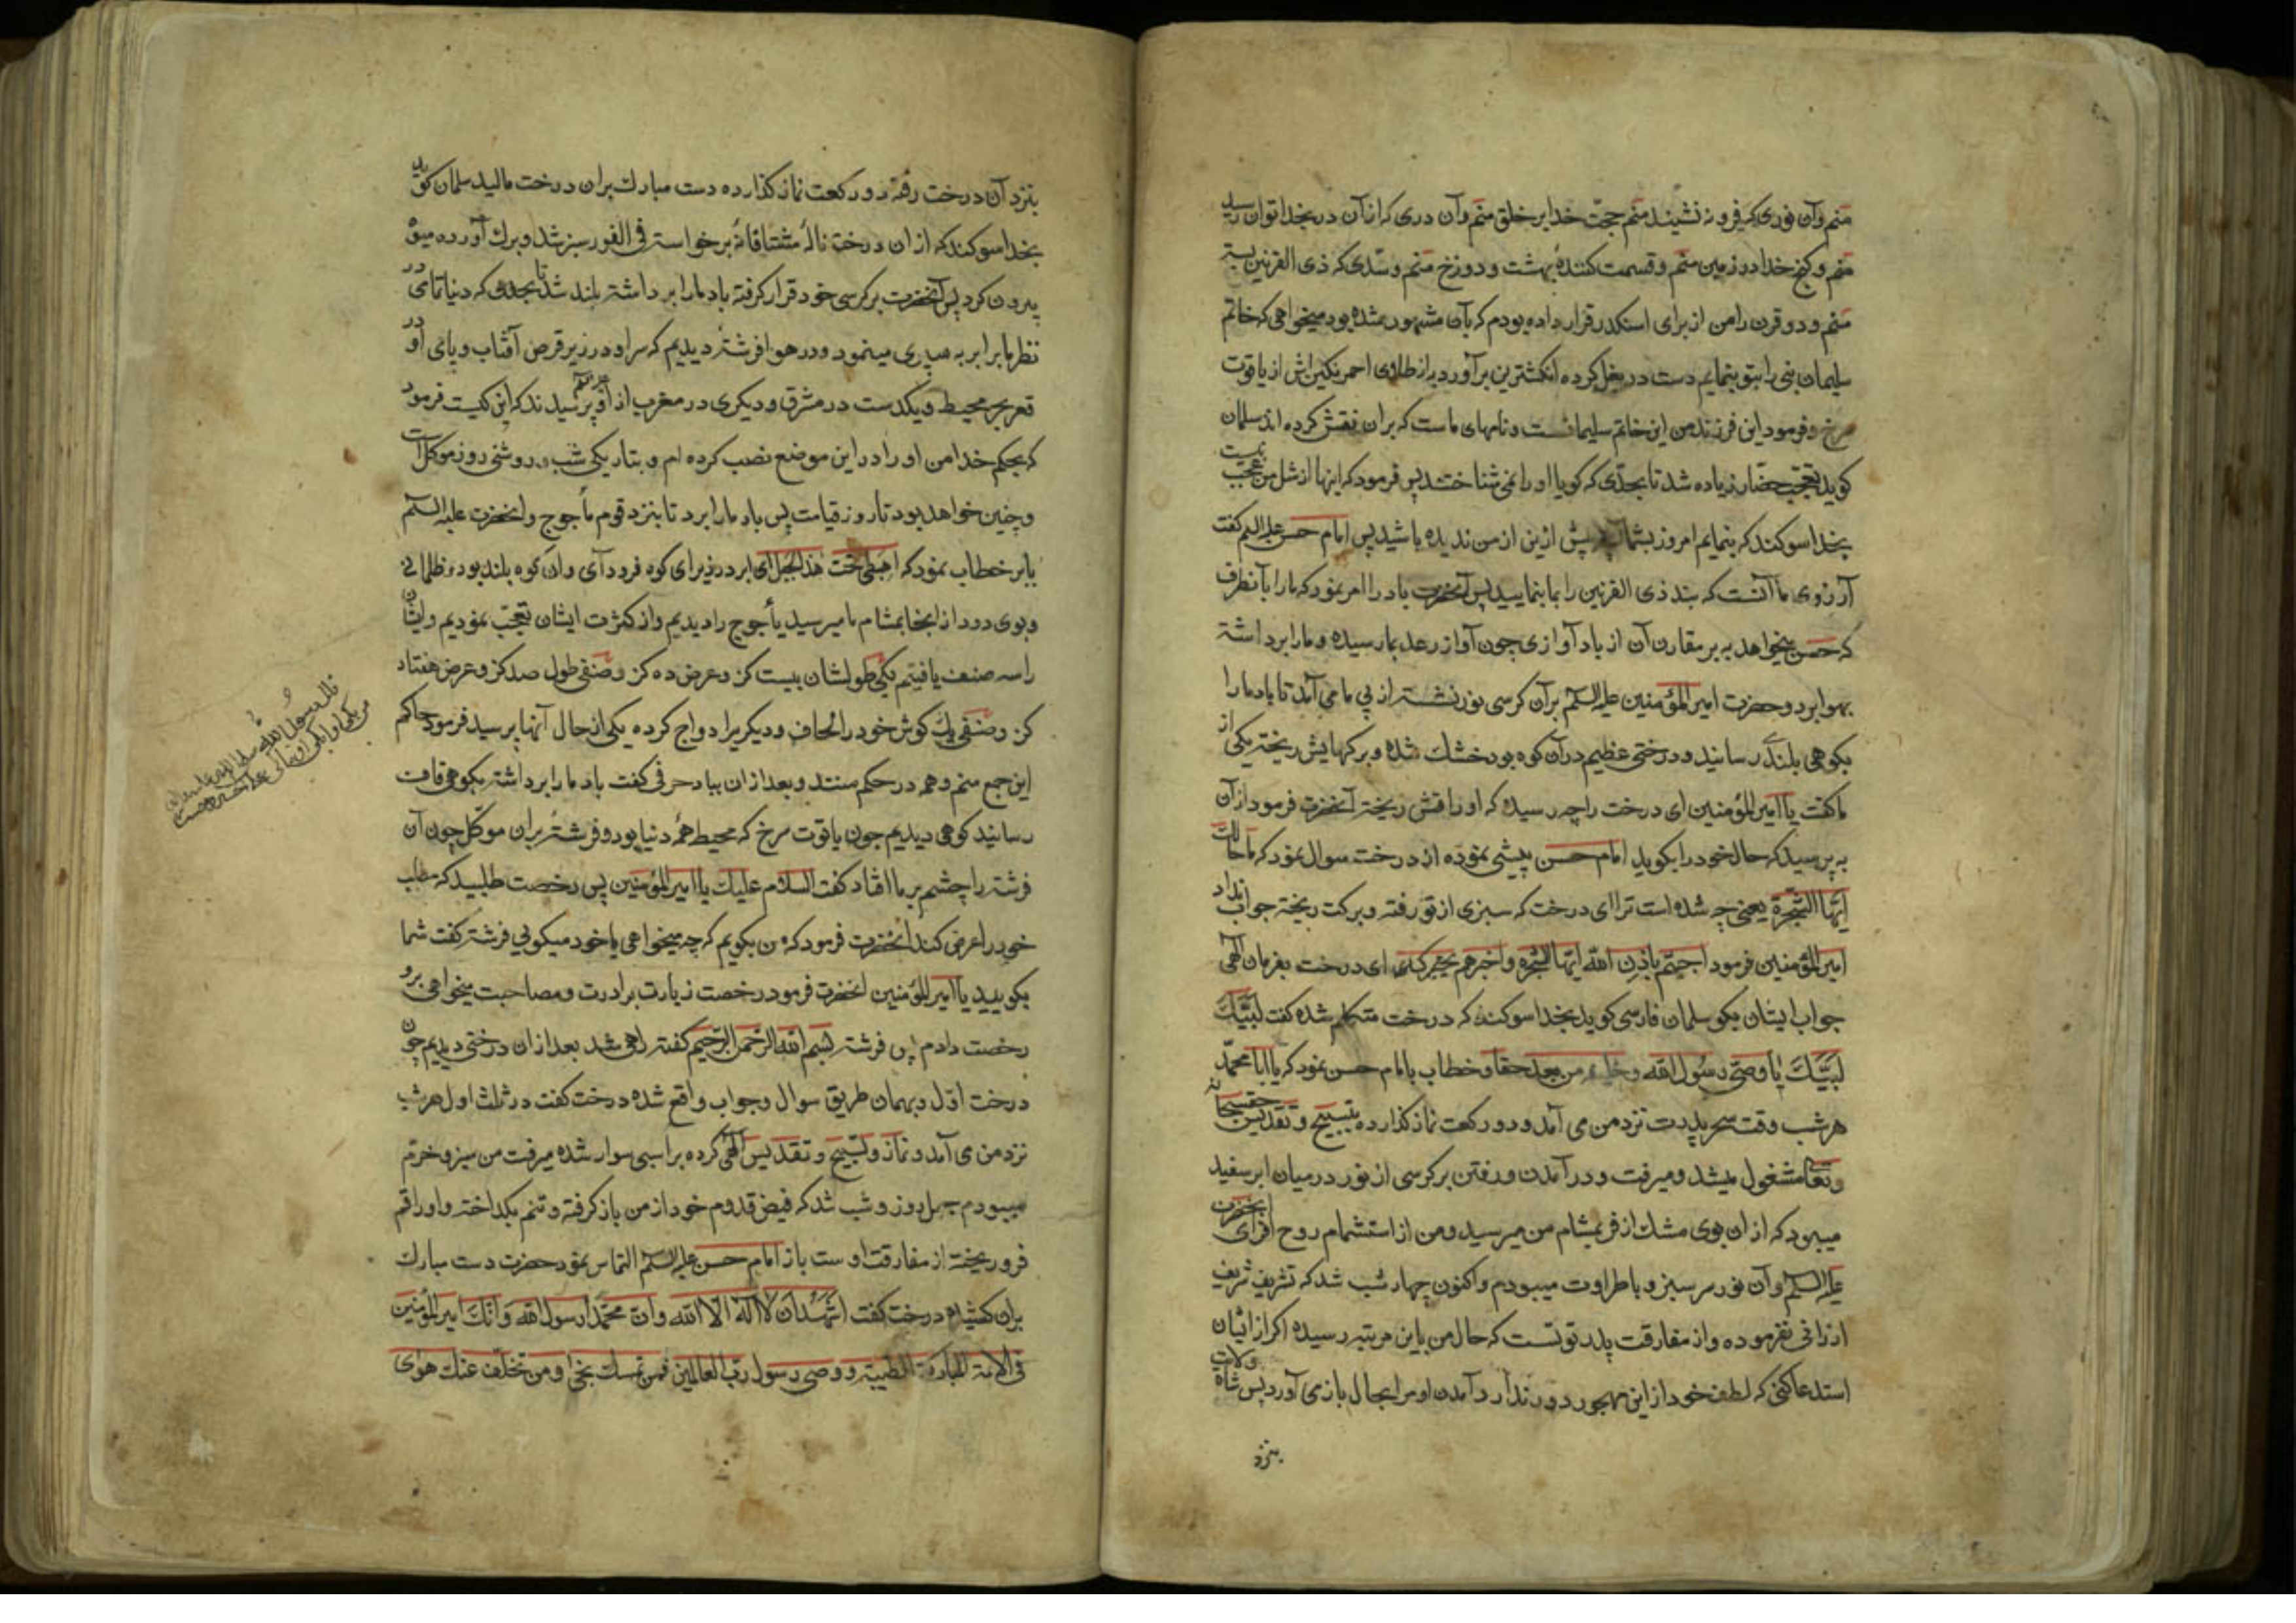 منم وآن نوری که فرو ننشیند منم حجت خدا بر خلق منم وآن دری که از آن در بخدا توان رسید
منم و کنج خدا در زمین منم و قسمت کنندهٔ بهشت و دوزخ منم و سدی که ذی القرنین بسته
منم و دو قرن را من از برای اسکندر قرار داده بودم که بآن مشهور شده بود میخواهی که خاتم
سلیمان نبی را بتو بنمایم دست در بغل کرده انکشترین برآورد از طلای احمر نکین اش از یاقوت
سرخ و فرمود این فرزند من این خاتم سلیمانست و نامهای ماست که بران نقش کرده اند سلمان
کوید تعجب حضار زیاده شد تا بحدی که کویا او را نمی شناختند پس فرمود که اینها از مثل من عجب نیست
بخدا سوکند که بنمایم امروز بشما پیش ازین از من ندیده باشید پس امام حسن علیه السلم کفت
آرزوی ما آنست که سد ذی القرنین را بما بنمایید پس آنحضرت باد را امر نمود که ما را بآنطرف
که حسن میخواهد به بر مقارن آن از باد آوازی چون آواز رعد بما رسیده و ما را برداشته
بهوا برد و حضرت امیر المؤمنین علیه السلم برآن کرسی نور نشسته از پی ما می آمد تا باد ما را
بکوهی بلند رسانید و درختی عظیم در آن کوه بود خشک شده و برکهایش ریخته یکی از
ما کفت یا امیر المؤمنین ای درخت را چه رسیده که اوراقش ریخته آنحضرت فرمود از آن
به پرسید که حال خود را بکوید امام حسن پیشی نموده از درخت سوال نمود که ما حالت
ایتها الشجرة یعنی چه شده است ترا ای درخت که سبزی از تو رفته و برکت ریخته جواب نداد
امیر المؤمنین فرمود اجیبهم باذن الله ایتها الشجره واخبرهم بخبرک ای درخت بفرمان الهی
جواب ایشان بکو سلمان فارسی کوید بخدا سوکند که درخت متکلم شده کفت لبیک
لبیک یا وصی رسول الله و من بعد حقا و خطاب بامام حسن نمود که یا ابا محمد
هر شب وقت سحر پدرت نزد من می آمد و دو رکعت نماز کذارده بتسبیح و تقدیس حقسبحانه
وتعا مشغول میشد و میرفت و در آمدن و رفتن بر کرسی از نور در میان ابر سفید
میبود که از ان بوی مشک ازفر بمشام من میرسید و من از استشمام روح افزای آنحضرت
علیه السلم وآن نور سرسبز و باطراوت میبودم و اکنون چهار شب شد که تشریف شریف
ارزانی نفرموده و از مفارقت پدر تو نست که حال من باین مرتبه رسیده اکر از ایشان
استدعا کنی که لطف خود از این مهجور دور ندارد آمدن او مرا بحال باز می آورد پس شاه ولایت
بنزد
بنزد آن درخت رفته دو رکعت نماز کذارده دست مبارک بران درخت مالید سلمان کوید
بخدا سوکند که از ان درخت نالهٔ مشتاقانه برخواسته فی الفور سبز شد و برک آورده میوه
بیرون کرد پس آنحضرت بر کرسی خود قرار کرفته باد ما را برداشته بلند شد تا بحدی که دنیا تمامی در
نظر ما برابر به سپری مینمود و در هوا فرشته دیدیم که سر او در زیر قرص آفتاب و پای او در
قعر بحر محیط و یکدست در مشرق و دیکری در مغرب از او پرسیدند که این کیست فرمود
که بحکم خدا من او را در این موضع نصب کرده ام و بتاریکی شب و روشنی روز موکل است
و چنین خواهد بود تا روز قیامت پس باد ما را برد تا بنزد قوم مأجوج و انحضرت علیه السلم
بابر خطاب نمود که اهبطی تحت هذا الجبل ای ابر در زیر ای کوه فرود آی و ان کوه بلند بود و ظلمانی
و بوی دود از انجا بمشام ما میرسید یأجوج را دیدیم و از کثرت ایشان تعجب نمودیم و ایشان
را سه صنف یافتیم یکی طولشان بیست کز و عرض ده کز و صنفی طول صد کز و عرض هفتاد
کز و صنفی یک کوش خود را لحاف و دیکریرا دواج کرده یکی از حال آنها پرسید فرمود حاکم
این جمع منم و هم در حکم منند و بعد از ان بباد حرفی کفت باد ما را برداشته بکوه قاف
رسانید کوهی دیدیم چون یاقوت سرخ که محیط همهٔ دنیا بود و فرشتهٔ بران موکل چون آن
فرشته را چشم بر ما افتاد کفت السلام علیک یا امیر المؤمنین پس رخصت طلبید که مطلب
خود را عرض کند آنحضرت فرمود که من بکویم که چه میخواهی یا خود میکویی فرشته کفت شما
بکویید یا امیر المؤمنین انحضرت فرمود رخصت زیارت برادرت و مصاحبت میخواهی برو
رخصت دادم پس فرشته بسم الله الرحمن الرحیم کفته راهی شد بعد از ان درختی دیدیم چون
درخت اول و بهمان طریق سوال و جواب واقع شده درخت کفت در ثلث اول هر شب
نزد من می آمد و نماز و تسبیح و تقدیس الهی کرده بر اسبی سوار شده میرفت من سبز و خرم
میبودم چهل روز و شب شد که فیض قدوم خود از من باز کرفته و تنم بکداخته و اوراقم
فرو ریخته از مفارقت اوست باز امام حسن علیه السلم التماس نمود حضرت دست مبارک
بران کشیده درخت کفت اشهد ان لا اله الا الله وان محمدا رسول الله وانک امیر المؤمنین
فی الامة المبارکة الطیبة و وصی رسول رب العالمین فمن تمسک بک نجی ومن تخلف عنک هوی
قال رسول الله صلی الله علیه